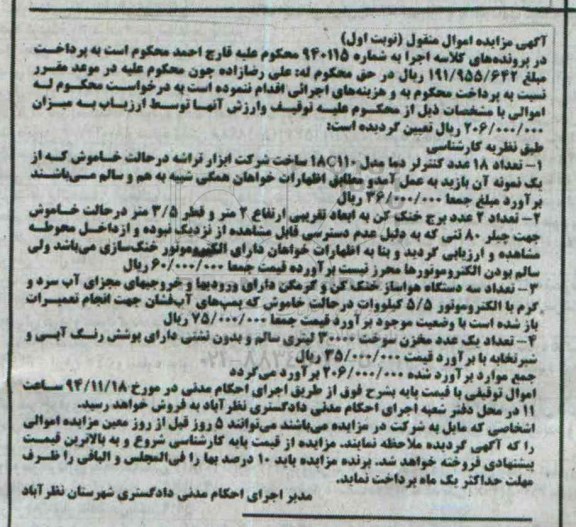 آگهی مزایده اموال منقول (نوبت اول)
در پرونده‌های کلاسه اجرا به شماره ۹۴۰۱۱۵ محکوم علیه قارچ احمد محکوم است به پرداخت
مبلغ ۱۹۱/۹۵۵/۶۴۲ ریال در حق محکوم له: علی رضازاده چون محکوم علیه در موعد مقرر
نسبت به پرداخت محکوم به و هزینه‌های اجرائی اقدام ننموده است به درخواست محکوم له
اموالی با مشخصات ذیل از محکوم علیه توقیف وارزش آنها توسط ارزیاب به میزان
۲۰۶/۰۰۰/۰۰۰ ریال تعیین گردیده است:
طبق نظریه کارشناسی
۱- تعداد ۱۸ عدد کنترلر دما مدل ۱۸C۱۱۰ ساخت شرکت ابزار تراشه درحالت خاموش که از
یک نمونه آن بازدید به عمل آمدو مطابق اظهارات خواهان همگی شبیه به هم و سالم می‌باشند
برآورد مبلغ جمعا ۳۶/۰۰۰/۰۰۰ ریال
۲- تعداد ۲ عدد برج خنک کن به ابعاد تقریبی ارتفاع ۲ متر و قطر ۳/۵ متر درحالت خاموش
جهت چیلر ۸۰ تنی که به دلیل عدم دسترسی قابل مشاهده از نزدیک نبوده و ازداخل محوطه
مشاهده و ارزیابی گردید و بنا به اظهارات خواهان دارای الکتروموتور خنک‌سازی می‌باشد ولی
سالم بودن الکتروموتورها محرز نیست برآورده قیمت جمعا ۶۰/۰۰۰/۰۰۰ ریال
۳- تعداد سه دستگاه هواساز خنک کن و گرمکن دارای ورودیها و خروجیهای مجزای آب سرد و
گرم با الکتروموتور ۵/۵ کیلووات درحالت خاموش که پمپ‌های آب‌فشان جهت انجام تعمیرات
باز شده است با وضعیت موجود برآورد قیمت جمعا ۷۵/۰۰۰/۰۰۰ ریال
۴- تعداد یک عدد مخزن سوخت ۳۰۰۰۰ لیتری سالم و بدون نشتی دارای پوشش رنگ آبی و
شیرتخلیه با برآورد قیمت ۳۵/۰۰۰/۰۰۰ ریال
جمع موارد برآورد شده ۲۰۶/۰۰۰/۰۰۰ برآورد می‌گردد
اموال توقیفی با قیمت پایه بشرح فوق از طریق اجرای احکام مدنی در مورخ ۹۴/۱۱/۱۸ ساعت
۱۱ در محل دفتر شعبه اجرای احکام مدنی دادگستری نظرآباد به فروش خواهد رسید.
اشخاصی که مایل به شرکت در مزایده می‌باشند می‌توانند ۵ روز قبل از روز معین مزایده اموالی
را که آگهی گردیده ملاحظه نمایند. مزایده از قیمت پایه کارشناسی شروع و به بالاترین قیمت
پیشنهادی فروخته خواهد شد. برنده مزایده باید ۱۰ درصد بها را فی‌المجلس و الباقی را ظرف
مهلت حداکثر یک ماه پرداخت نماید.
مدیر اجرای احکام مدنی دادگستری شهرستان نظرآباد